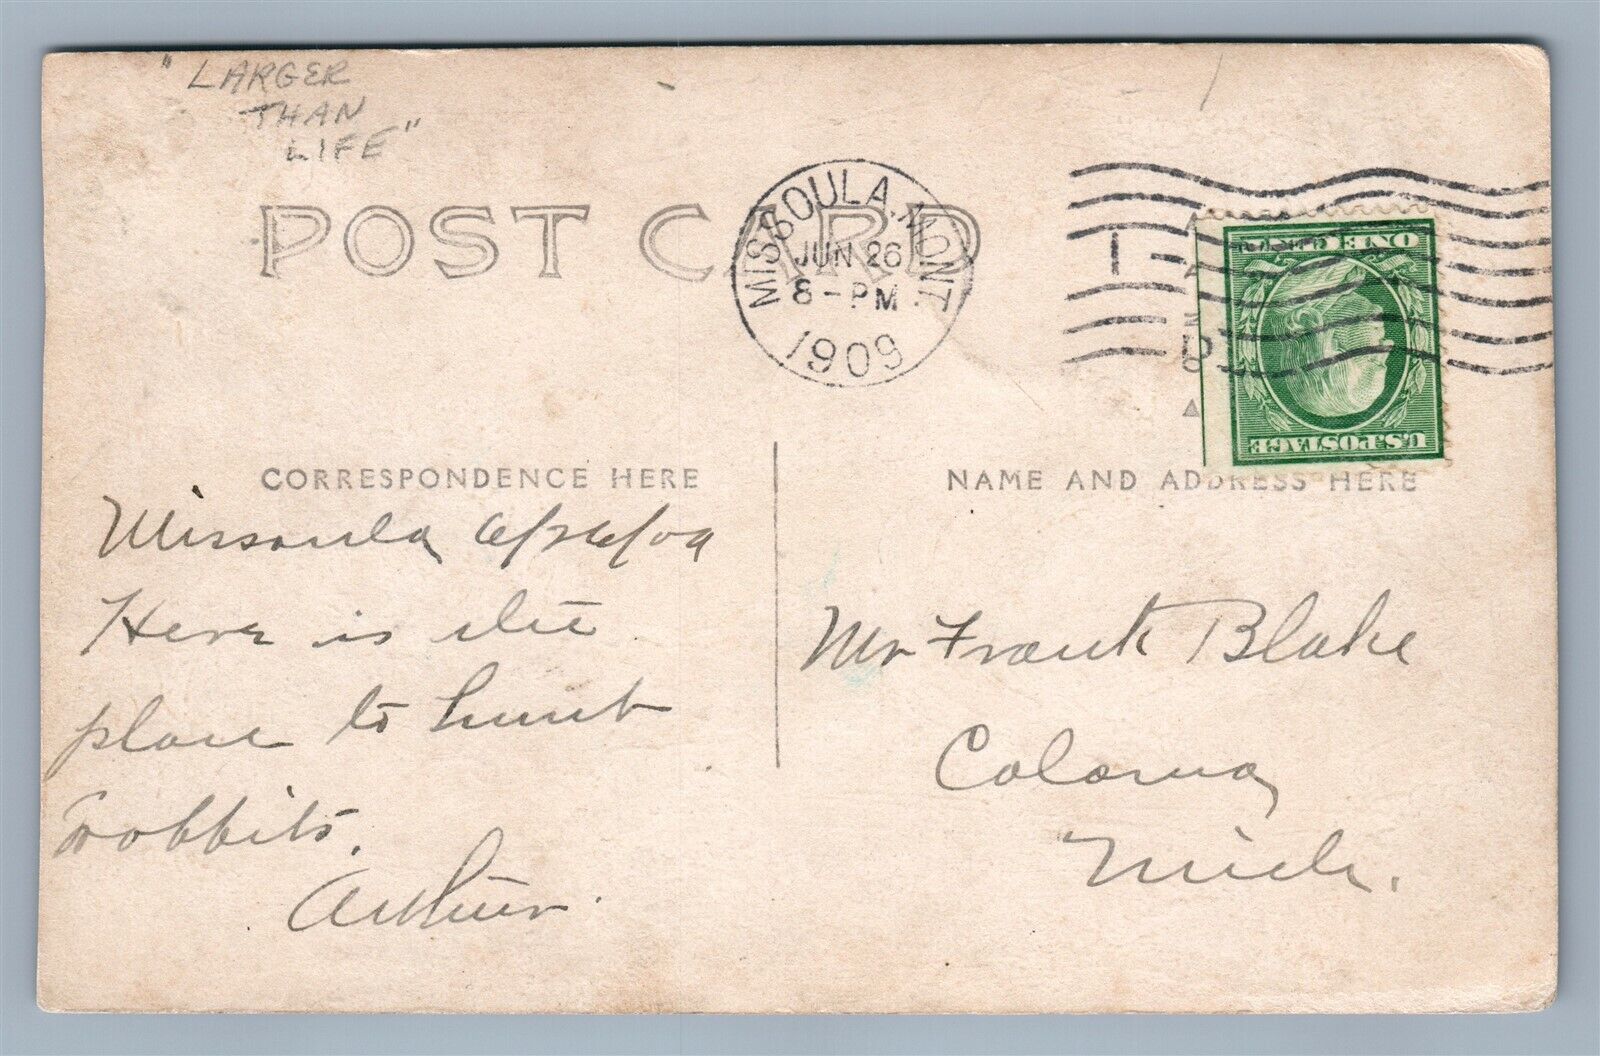 "LARGER
THAN
LIFE"
POST CARD
MISSOULA, MONT.
JUN 26
8-PM
1909
1
ONE CENT
U.S. POSTAGE
CORRESPONDENCE HERE
NAME AND ADDRESS HERE
Missoula 6/26/09
Here is the
place to hunt
rabbits.
Arthur.
Mr Frank Blake
Coloma
Mich.